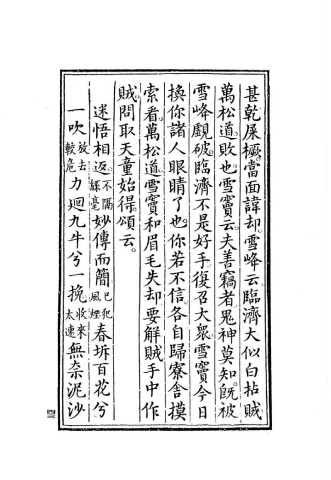 甚乾屎橛當面諱却雪峰云臨濟大似白拈賊
萬松道敗也雪竇云夫善竊者鬼神莫知旣被
雪峰覷破臨濟不是好手復召大衆雪竇今日
換你諸人眼睛了也你若不信各自歸寮舍摸
索看萬松道雪竇和眉毛失却要解賊手中作
賊問取天童始得頌云
迷悟相返不隔絲毫妙傳而簡已犯風煙春坼百花兮
一吹放去較危力迴九牛兮一挽收來太速無奈泥沙